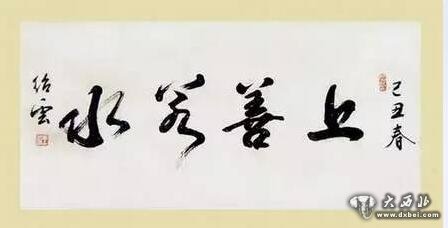 己丑春
上善若水
绍云
大西北
www.dxbei.com